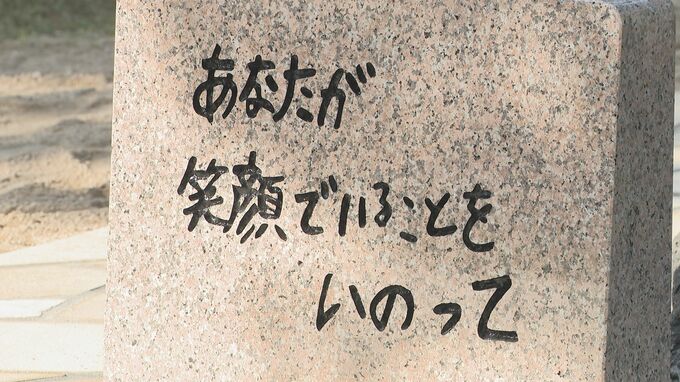 あなたが
笑顔でいることを
いのって